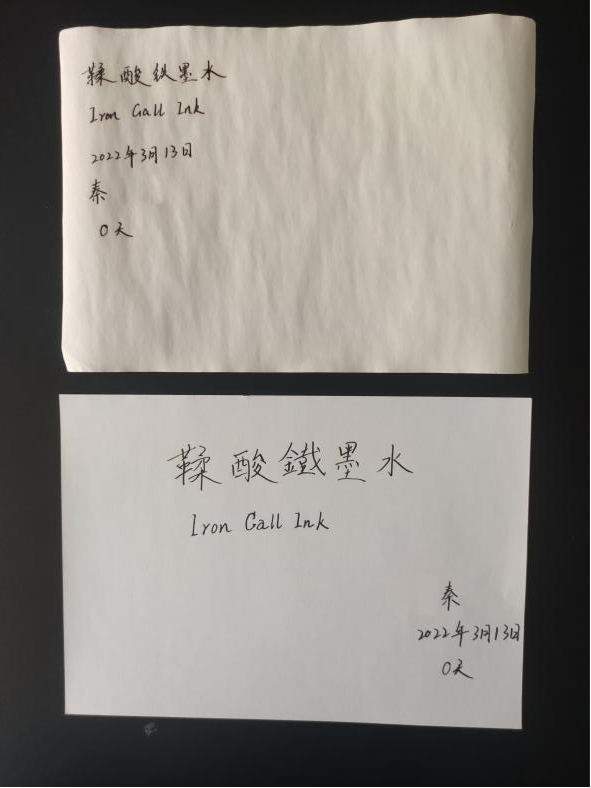 鞣酸铁墨水
Iron Gall Ink
2022年3月13日
秦
0天
鞣酸鐵墨水
Iron Gall Ink
秦
2022年3月13日
0天